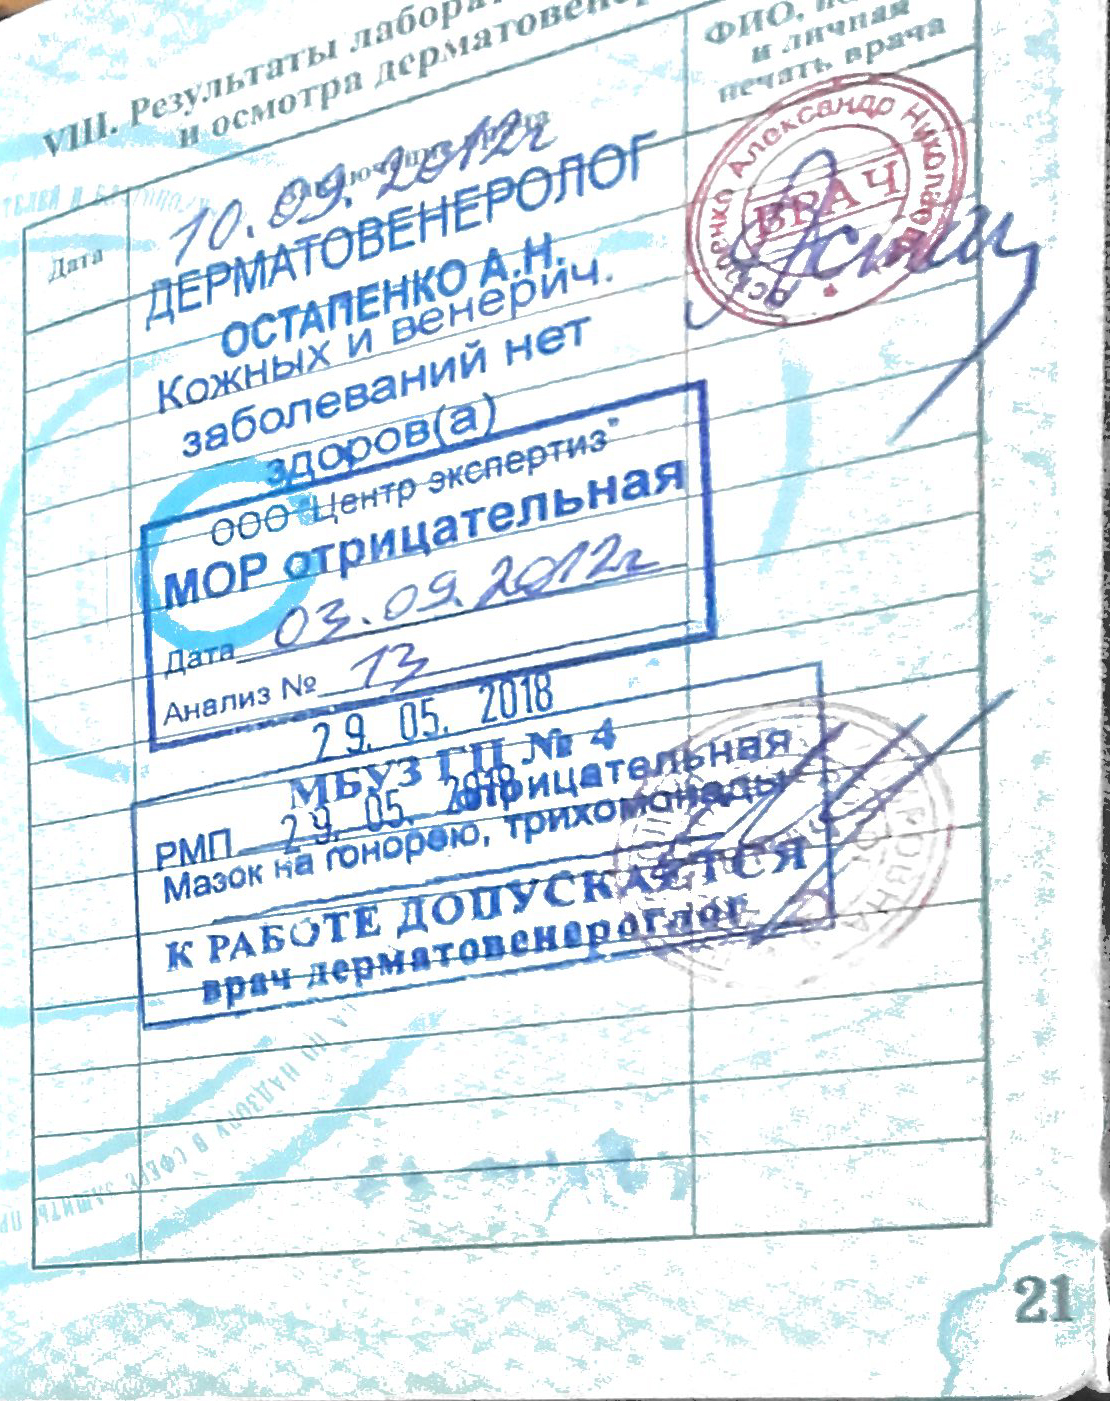 VIII. Результаты
и осмотра
ФИО,
и личная
печать врача
Дата
10.09.2012г
ДЕРМАТОВЕНЕРОЛОГ
ОСТАПЕНКО А.Н.
Кожных и венерич.
заболеваний нет
здоров(а)
Александр
ВРАЧ
ООО "Центр экспертиз"
МОР отрицательная
Дата 03.09.2012г
Анализ № 13
29. 05. 2018
МБУЗ ГП № 4
РМП 29. 05. 2018 отрицательная
Мазок на гонорею, трихомонады
К РАБОТЕ ДОПУСКАЕТСЯ
врач дерматовенероглог
21